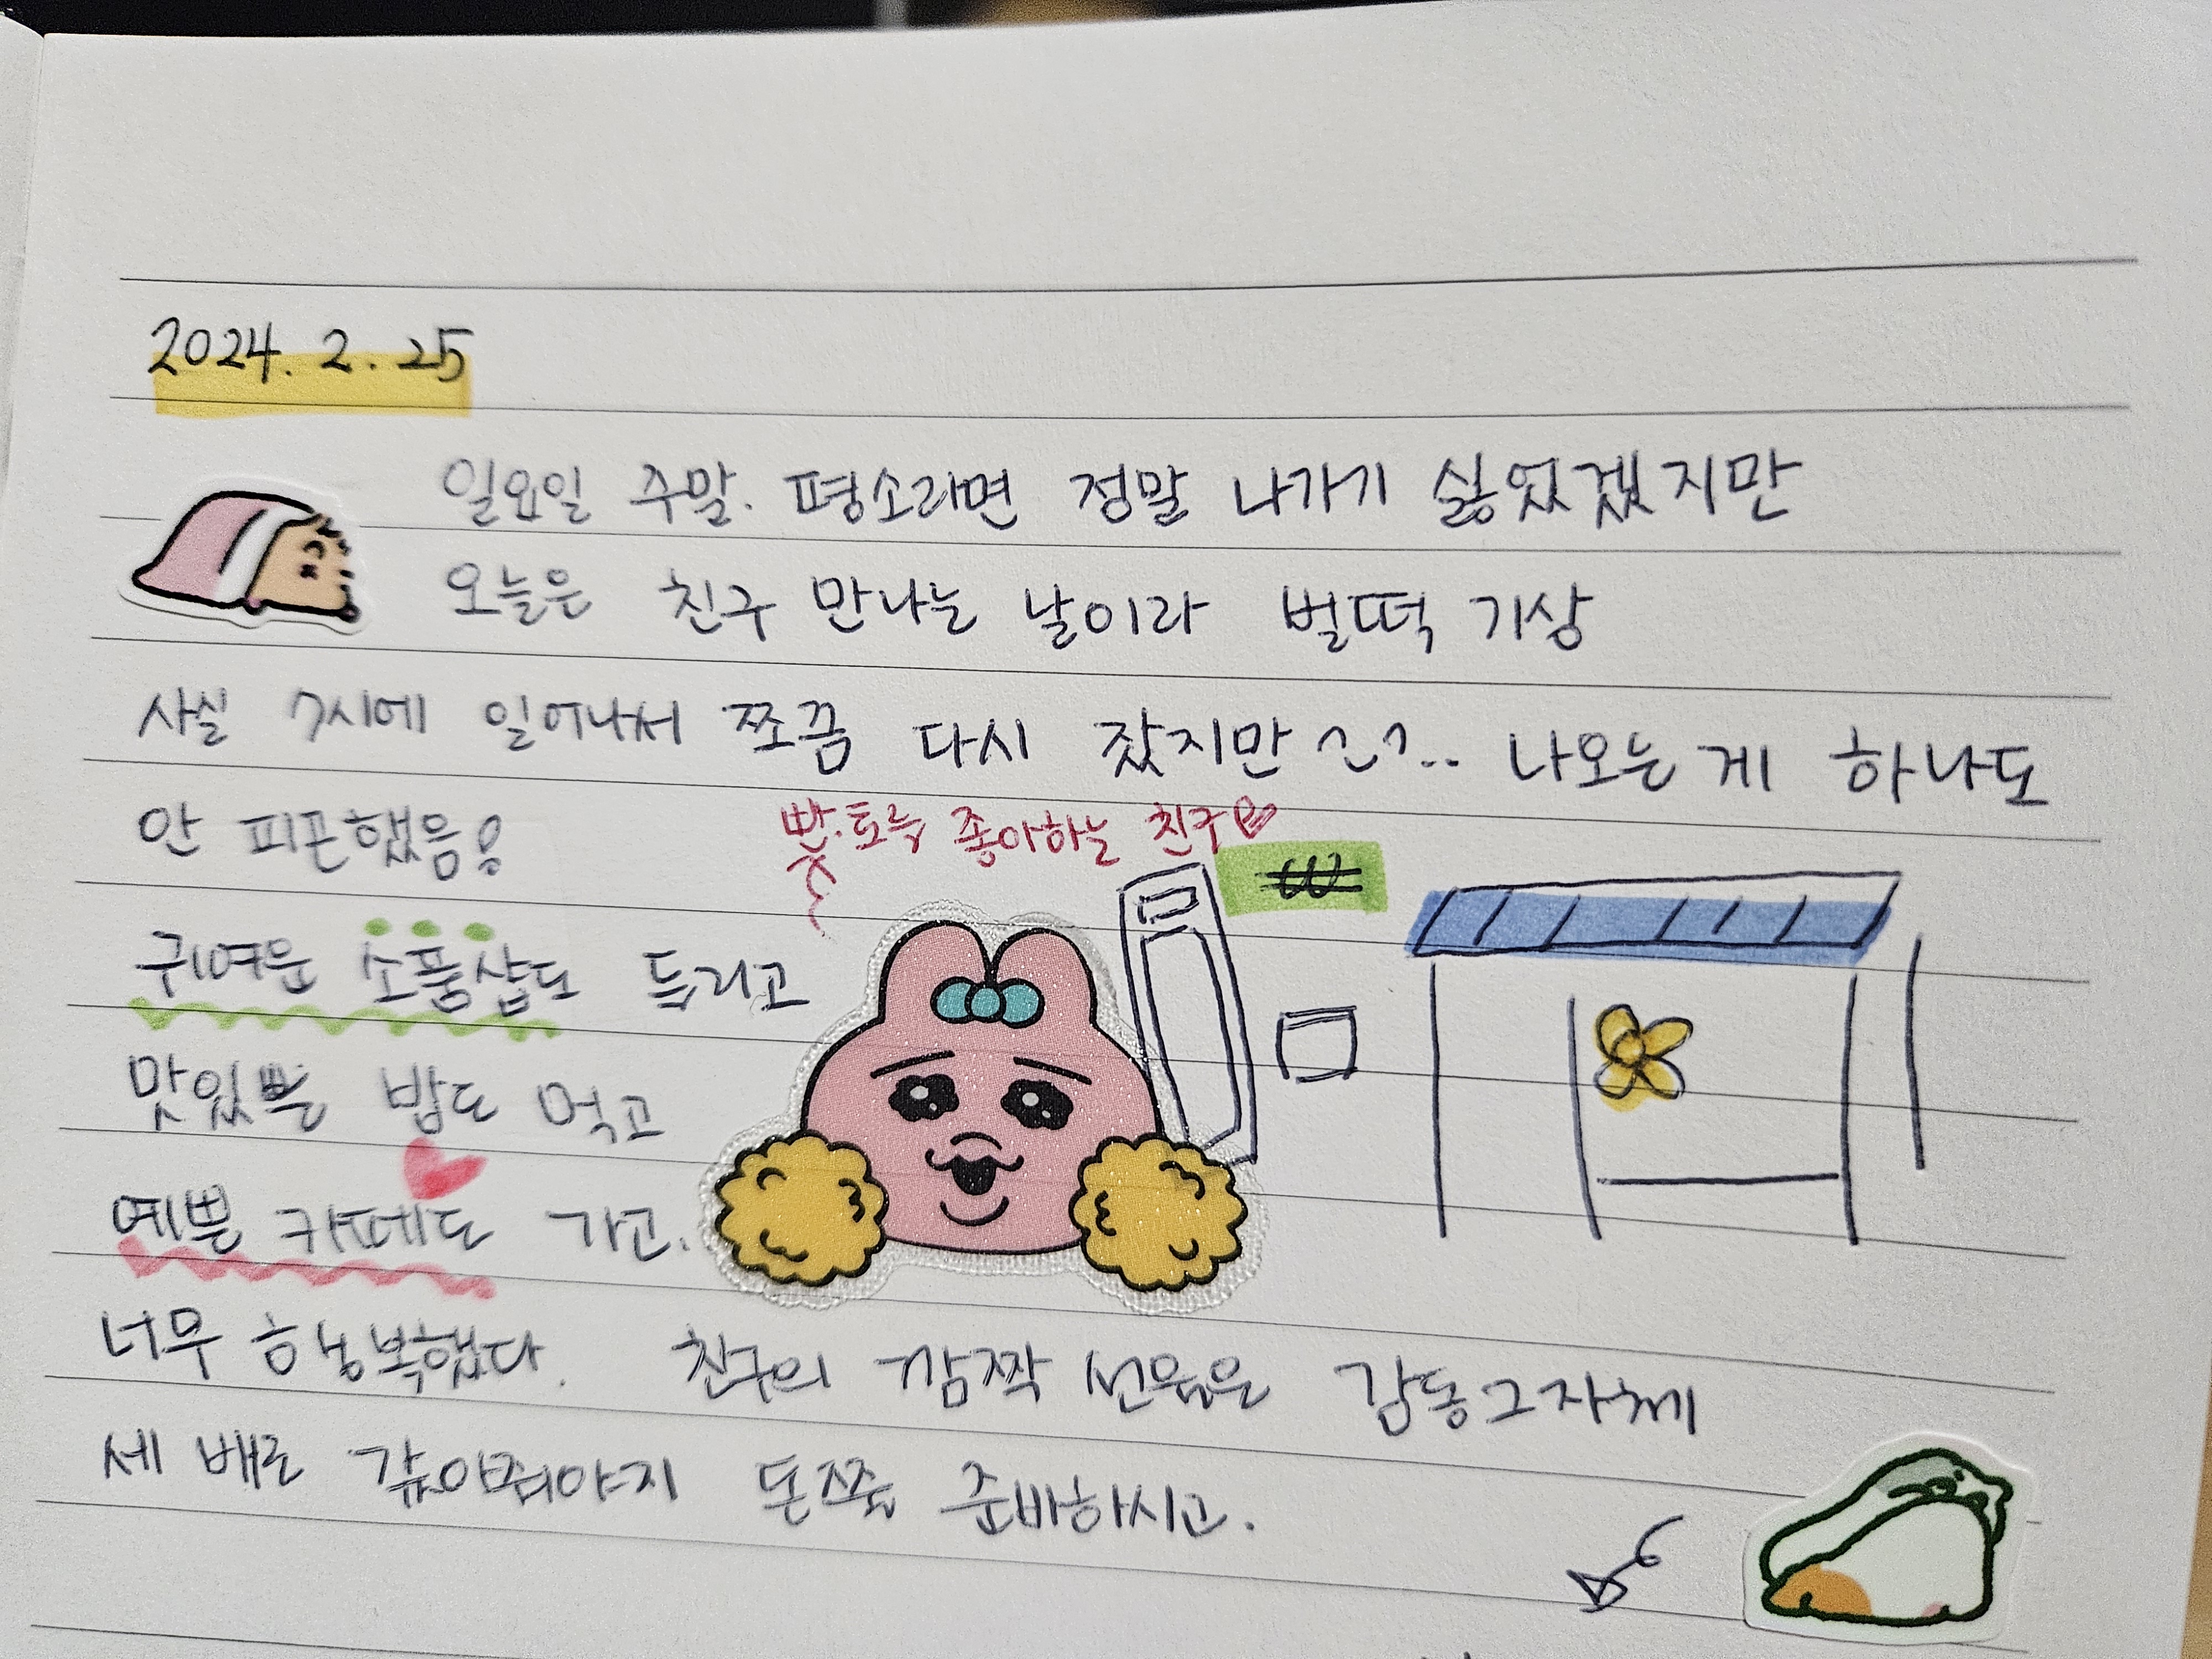 2024. 2. 25
일요일 주말. 평소라면 정말 나가기 싫었겠지만
오늘은 친구 만나는 날이라 벌떡 기상
사실 7시에 일어나서 쪼끔 다시 잤지만 ^^.. 나오는 게 하나도
안 피곤했음!
빵.토루 좋아하는 친구♡
귀여운 소품샵도 들리고
맛있는 밥도 먹고
예쁜 카페도 가고.
너무 행복했다. 친구의 깜짝 선물은 감동그자체
세 배로 갚아줘야지 돈쭐 준비하시고.